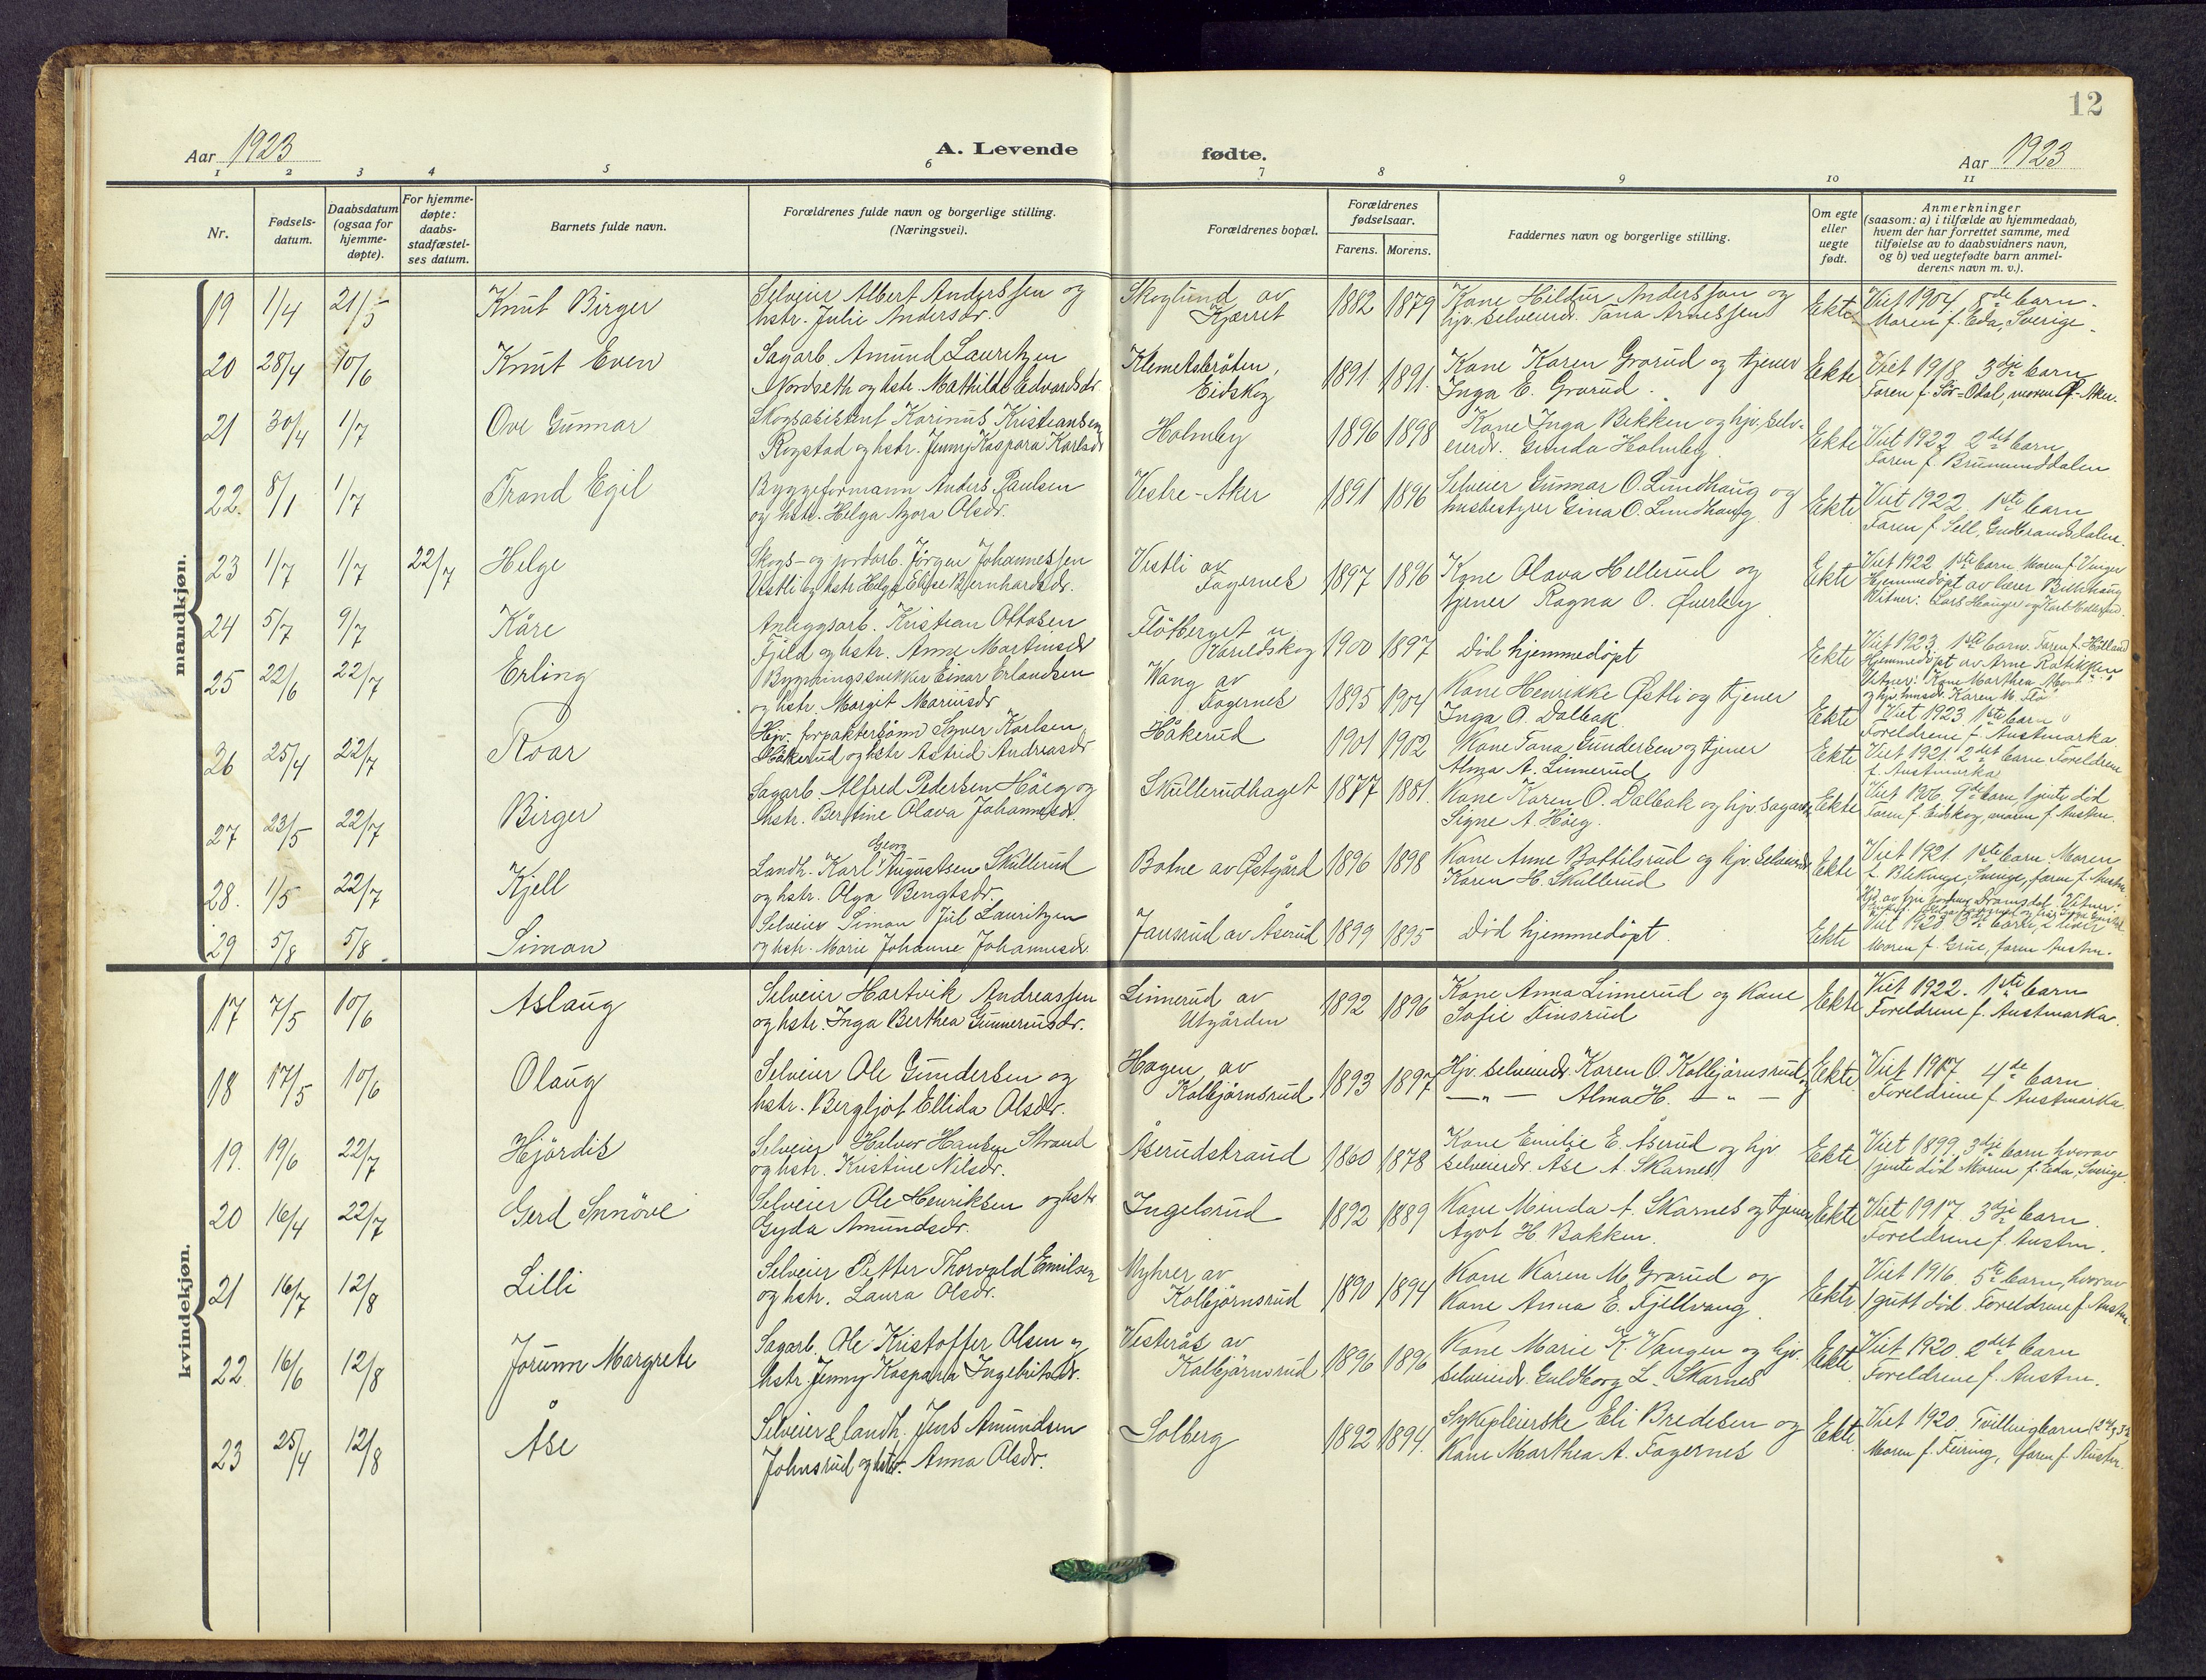 12
Aar 1923
A. Levende
fødte.
Aar 1923
1 2 3 4 5 6 7 8 9 10 11
Nr.
Fødsels-
datum.
Daabsdatum
(ogsaa for
hjemme-
døpte).
For hjemme-
døpte:
daabs-
stadfæstel-
ses datum.
Barnets fulde navn.
Forældrenes fulde navn og borgerlige stilling.
(Næringsvei).
Forældrenes bopæl.
Forældrenes
fødselsaar.
Farens. Morens.
Faddernes navn og borgerlige stilling.
Om egte
eller
uegte
født.
Anmerkninger
(saasom: a) i tilfælde av hjemmedaab,
hvem der har forrettet samme, med
tilføielse av to daabsvidners navn,
og b) ved uegtefødte barn anmel-
derens navn m. v.).
mandkjøn.
19 1/4 21/5 Knut Birger Selveier Albert Anderssen og Skoglund av 1882 1879 Kone Hildur Anderssen og Ekte Viet 1904. 8de barn.
hstr. Julie Andersdr. Kjerret hjv. selveierdr. Tona Arnessen Moren f. Eda, Sverige.
20 28/4 10/6 Knut Even Sagarb. Amund Lauritzen Klemetsbråten, 1891 1891 Kone Karen Grorud og tjener Ekte Viet 1918 3dje barn
Nordseth og hstr. Mathilde Edvardsdr. Eidskog Inga E. Grorud. Faren f. Sør-Odal, moren Ø-Aker.
21 30/4 1/7 Ove Gunnar Skogsassistent Karinus Kristiansen Holmby 1896 1898 Kone Inga Bekken og hjv. selv- Ekte Viet 1922 2det barn
Rogstad og hstr. Jenny Kaspara Karlsdr. eierdr. Gunda Holmby. Faren f. Brumunddalen
22. 8/1 1/7 Trond Egil Byggeformann Anders Paulsen Vestre-Aker 1891 1896 Selveier Gunnar O. Lundhaug og Ekte Viet 1922 1ste barn
og hstr. Helga Azora Olsdr. husbestyrer Gina O. Lundhaug Faren f. Sell, Gudbrandsdalen.
23 1/7 1/7 22/7 Helge Skogs- og jordarb. Jørgen Johannessen Vestli av 1897 1896 Kone Olava Hellerud og Ekte Viet 1922 1ste barn Moren f. Vinger
Vestli og hstr. Helga Elise Bernhardsdr. Fagernes tjener Ragna O. Øverby Hjemmedøpt av lærer
Vitner: Lars Hauger og Karl
24 5/7 9/7 Kåre Anleggsarb. Kristian Ottosen Flötberget 1900 1897 Död hjemmedöpt Ekte Viet 1923 1ste barn. Faren f. Hölland
Fjeld og hstr. Anne Martinsdr. Varildskog Hjemmedöpt av Arne
Vitner: Kone Marthea
25 22/6 22/7 Erling Bygningssnekker Einar Erlandsen Wang av 1895 1904 Kone Henrikke Østli og tjener Ekte Viet 1923 1ste barn
og hstr. Margit Mariusdr. Fagernes Inga O. Dalbak Foreldrene f. Austmarka
26 25/4 22/7 Roar Hjv. forpaktersønn Syver Karlsen Håkerud 1901 1902 Kone Tona Gundersen og tjener Ekte Viet 1921. 2det barn Foreldrene
Håkerud og hstr. Astrid Andreasdr. Alma A. Linnerud f. Austmarka
27 23/5 22/7 Birger Sagarb. Alfred Pedersen Höeg og Skullerudhaget 1877 1881 Kone Karen O. Dalbak og hjv. sagarb.dr. Ekte Viet 1906. 9de barn 1 jente död
hstr. Bertine Olava Johannesdr. Signe A. Höeg. Faren f. Eidskog, moren f. Austm.
28. 1/5 22/7 Kjell Landh. Karl Georg Augustsen Skullerud Botne av Østgård 1896 1898 Kone Anne Bottilsrud og hjv. selveierdr. Ekte Viet 1921. 1ste barn Moren
og hstr. Olga Bengtsdr. Karen H. Skullerud f. Blekinge, Sverige, faren f. Austm.
29 5/8 5/8 Simon Selveier Simon Jul Lauritzen Jansrud av Åserud 1899 1895 Död hjemmedöpt. Ekte Viet 1920 3dje barn, 2 lever
og hstr. Marie Johanne Johannesdr. Moren f. Grue, faren Austm.
kvindekjøn.
17 7/5 10/6 Aslaug Selveier Hartvik Andreassen Linnerud av 1892 1896 Kone Anna Linnerud og Kone Ekte Viet 1922. 1ste barn
og hstr. Inga Berthea Gunneriusdr. Utgården Sofie Finsrud Foreldrene f. Austmarka.
18 17/5 10/6 Olaug Selveier Ole Gundersen og Hagen av 1893 1897 Hjv. selveierdr. Karen O. Kolbjörnsrud og Ekte Viet 1917 4de barn
hstr. Bergljot Ellida Olsdr. Kolbjörnsrud — „ — Alma H. — „ — Foreldrene f. Austmarka
19. 19/6 22/7 Hjördis Selveier Halvor Hansen Strand Åserudstrand 1860 1878 Kone Emilie E. Åserud og hjv Ekte Viet 1899. 3dje barn hvorav
og hstr. Kristine Nilsdr. selveierdr. Åse A. Skarnes 1 jente död Moren f. Eda, Sverige
20 16/4 22/7 Gerd Synnöve Selveier Ole Henriksen og hstr. Ingelsrud 1892 1889 Kone Minda A. Skarnes og tjener Ekte Viet 1917. 3dje barn.
Gyda Amundsdr. Agot H Bakken. Foreldrene f. Austm.
21 16/7 12/8 Lilli Selveier Petter Thorvald Emilsen Myhrer av 1890 1894 Kone Karen M. Grorud og Ekte Viet 1916. 5te barn, hvorav
og hstr. Laura Olsdr. Kolbjörnsrud Kone Anna E. Fjellvang 1 gutt död. Foreldrene f. Austm.
22 16/6 12/8 Jorunn Margrete Sagarb. Ole Kristoffer Olsen og Vesterås av 1896 1896 Kone Marie K. Vangen og hjv. Ekte Viet 1920. 2det barn
hstr. Jenny Kaspara Ingebritsdr. Kolbjörnsrud selveierdr. Guldborg L. Skarnes Foreldrene f. Austm.
23 25/4 12/8 Åse Selveier & landh. Jens Amundsen Solberg 1892 1894. Sykepleierske Eli Bredesen og Ekte Viet 1920. Tvillingbarn
Johnsrud og hstr. Anna Olsdr. Kone Marthea A. Fagernes Moren f. Feiring, faren f. Austm.